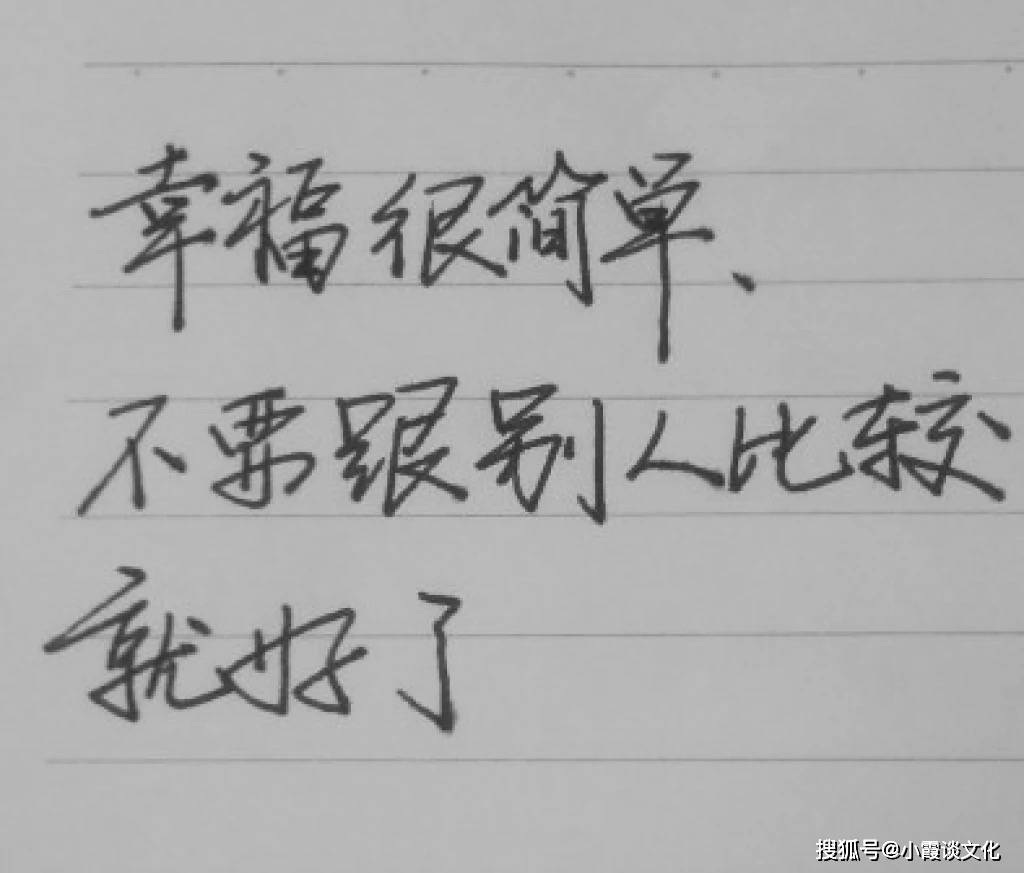 幸福很简单、
不要跟别人比较
就好了
搜狐号@小霞谈文化